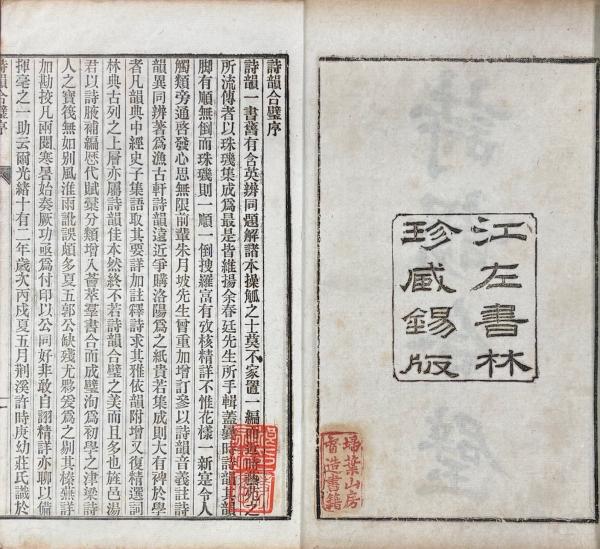 江左書林
珍臧錫版
埽葉山房
督造書籍
詩韻合璧序
詩韻一書舊有含英辨同題解諸本操觚之士莫不家置一編而近時藝苑之
所流傳者以珠璣集成爲最是皆維揚余春廷先生所手輯蓋曩時詩韻其韻
脚有順無倒而珠璣則一順一倒搜羅富有攷核精詳不惟花樣一新是令人
觸類旁通啓發心思無限前輩朱月坡先生曾重加增訂參以詩韻音義註詩
韻異同辨著爲漁古軒詩韻遠近爭購洛陽爲之紙貴若集成則大有裨於學
者凡韻典中經史子集語取其要詳加註釋詩求其雅依韻附增又復精選詞
林典古列之上層亦屬詩韻佳本然終不若詩韻合璧之美而且多也旌邑湯
君以詩腋補編歴代賦彙分類增入薈萃羣書合而成璧洵爲初學之津梁詩
人之寶筏無如别風淮雨訛誤頗多夏五郭公缺殘尤夥爰爲之剔其榛蕪詳
加勘挍凡兩閲寒暑始奏厥功亟爲付印以公同好非敢自詡精詳亦聊以備
揮毫之一助云爾光緒十有二年歲次丙戌夏五月荆溪許時庚幼莊氏識於
詩韻合璧序 一